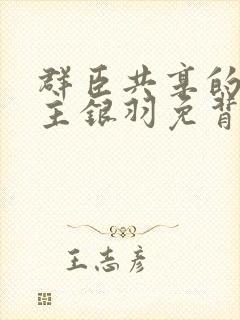 群臣共享的
主银羽免背
王志彦